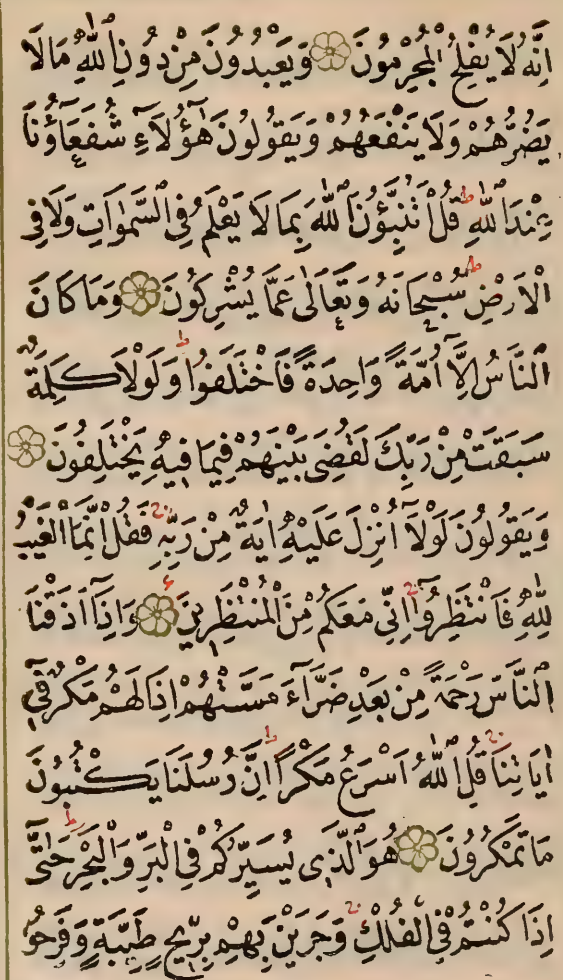 اِنَّهُ لَا يُفْلِحُ الْمُجْرِمُونَ وَيَعْبُدُونَ مِنْ دُونِ اللّٰهِ مَالَا
يَضُرُّهُمْ وَلَا يَنْفَعُهُمْ وَيَقُولُونَ هٰٓؤُلَآءِ شُفَعَآؤُنَا
عِنْدَ اللّٰهِ ط قُلْ اَتُنَبِّؤُنَ اللّٰهَ بِمَا لَا يَعْلَمُ فِي السَّمٰوَاتِ وَلَا فِي
الْاَرْضِ ط سُبْحَانَهُ وَتَعَالٰى عَمَّا يُشْرِكُونَ وَمَا كَانَ
النَّاسُ اِلَّآ اُمَّةً وَاحِدَةً فَاخْتَلَفُوا ط وَلَوْلَا كَلِمَةٌ
سَبَقَتْ مِنْ رَبِّكَ لَقُضِيَ بَيْنَهُمْ فِيمَا فِيهِ يَخْتَلِفُونَ
وَيَقُولُونَ لَوْلَآ اُنْزِلَ عَلَيْهِ اٰيَةٌ مِنْ رَبِّهِ فَقُلْ اِنَّمَا الْغَيْبُ
لِلّٰهِ فَانْتَظِرُوٓا اِنِّي مَعَكُمْ مِنَ الْمُنْتَظِرِينَ وَاِذَآ اَذَقْنَا
النَّاسَ رَحْمَةً مِنْ بَعْدِ ضَرَّآءَ مَسَّتْهُمْ اِذَا لَهُمْ مَكْرٌ فِيٓ
اٰيَاتِنَا قُلِ اللّٰهُ اَسْرَعُ مَكْرًا ط اِنَّ رُسُلَنَا يَكْتُبُونَ
مَا تَمْكُرُونَ هُوَ الَّذِي يُسَيِّرُكُمْ فِي الْبَرِّ وَالْبَحْرِ ط حَتّٰٓى
اِذَا كُنْتُمْ فِي الْفُلْكِ وَجَرَيْنَ بِهِمْ بِرِيحٍ طَيِّبَةٍ وَفَرِحُوا